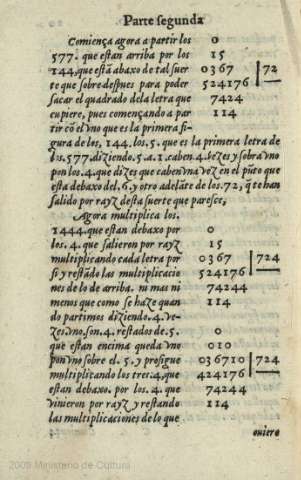 Parte segunda
Comiença agora a partir los
577. que estan arriba por los
144. que està abaxo de tal suer
te que sobre despues para poder
sacar el quadrado dela letra que
cupiere, pues començando a par
tir cõ el vno que es la primera fi-
gura de los, 144. los. 5. que es la primera letra de
los. 577. diziendo. 5. a. 1. caben. 4. vezes y sobra vno
pon los. 4. que dizes que caben vna vez en el pũto que
esta debaxo del. 6. y otro adelãte de los. 72, q̃ te han
salido por rayz desta suerte que paresce,
0
15
0367 | 72
524176
7424
114
Agora multiplica los.
1444. que estan debaxo por
los. 4. que salieron por rayz
multiplicando cada letra por
si y restãdo las multiplicacio
nes de lo de arriba. ni mas ni
menos que como se haze quan
do partimos diziendo. 4. ve-
zes. vno. son. 4. restados de. 5.
que estan encima queda vno
pon vno sobre el. 5. y prosigue
multiplicando los tres. 4. que
estan debaxo. por los. 4. que
vinieron por rayz y restando
las multiplicaciones de lo que
0
15
0367 | 724
524176
74244
114
0
010
036710 | 724
424176
74244
114
ouiere
2009 Ministerio de Cultura